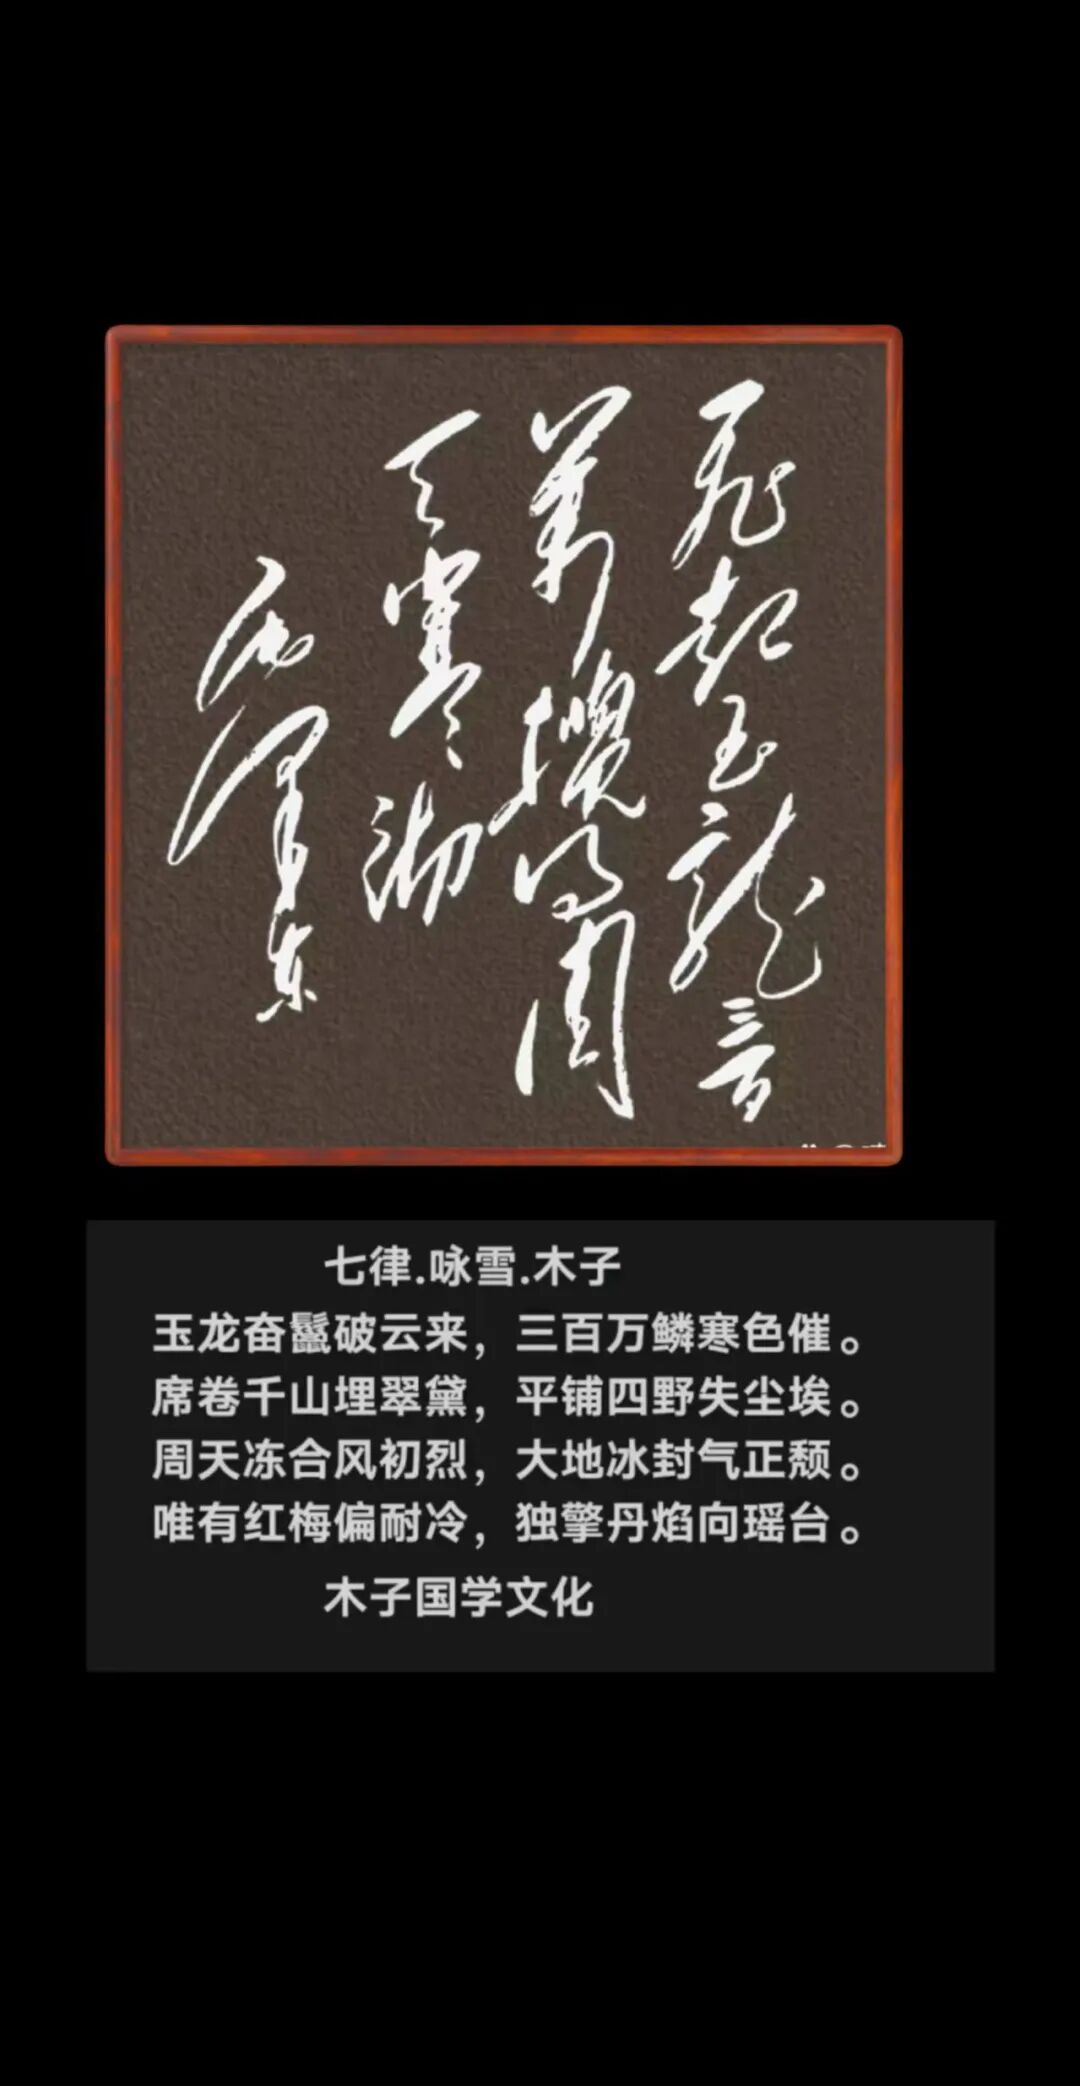 飛起玉龍三百
萬攪得周
天寒徹
毛澤东
七律.咏雪.木子
玉龙奋鬣破云来，三百万鳞寒色催。
席卷千山埋翠黛，平铺四野失尘埃。
周天冻合风初烈，大地冰封气正颓。
唯有红梅偏耐冷，独擎丹焰向瑶台。
木子国学文化